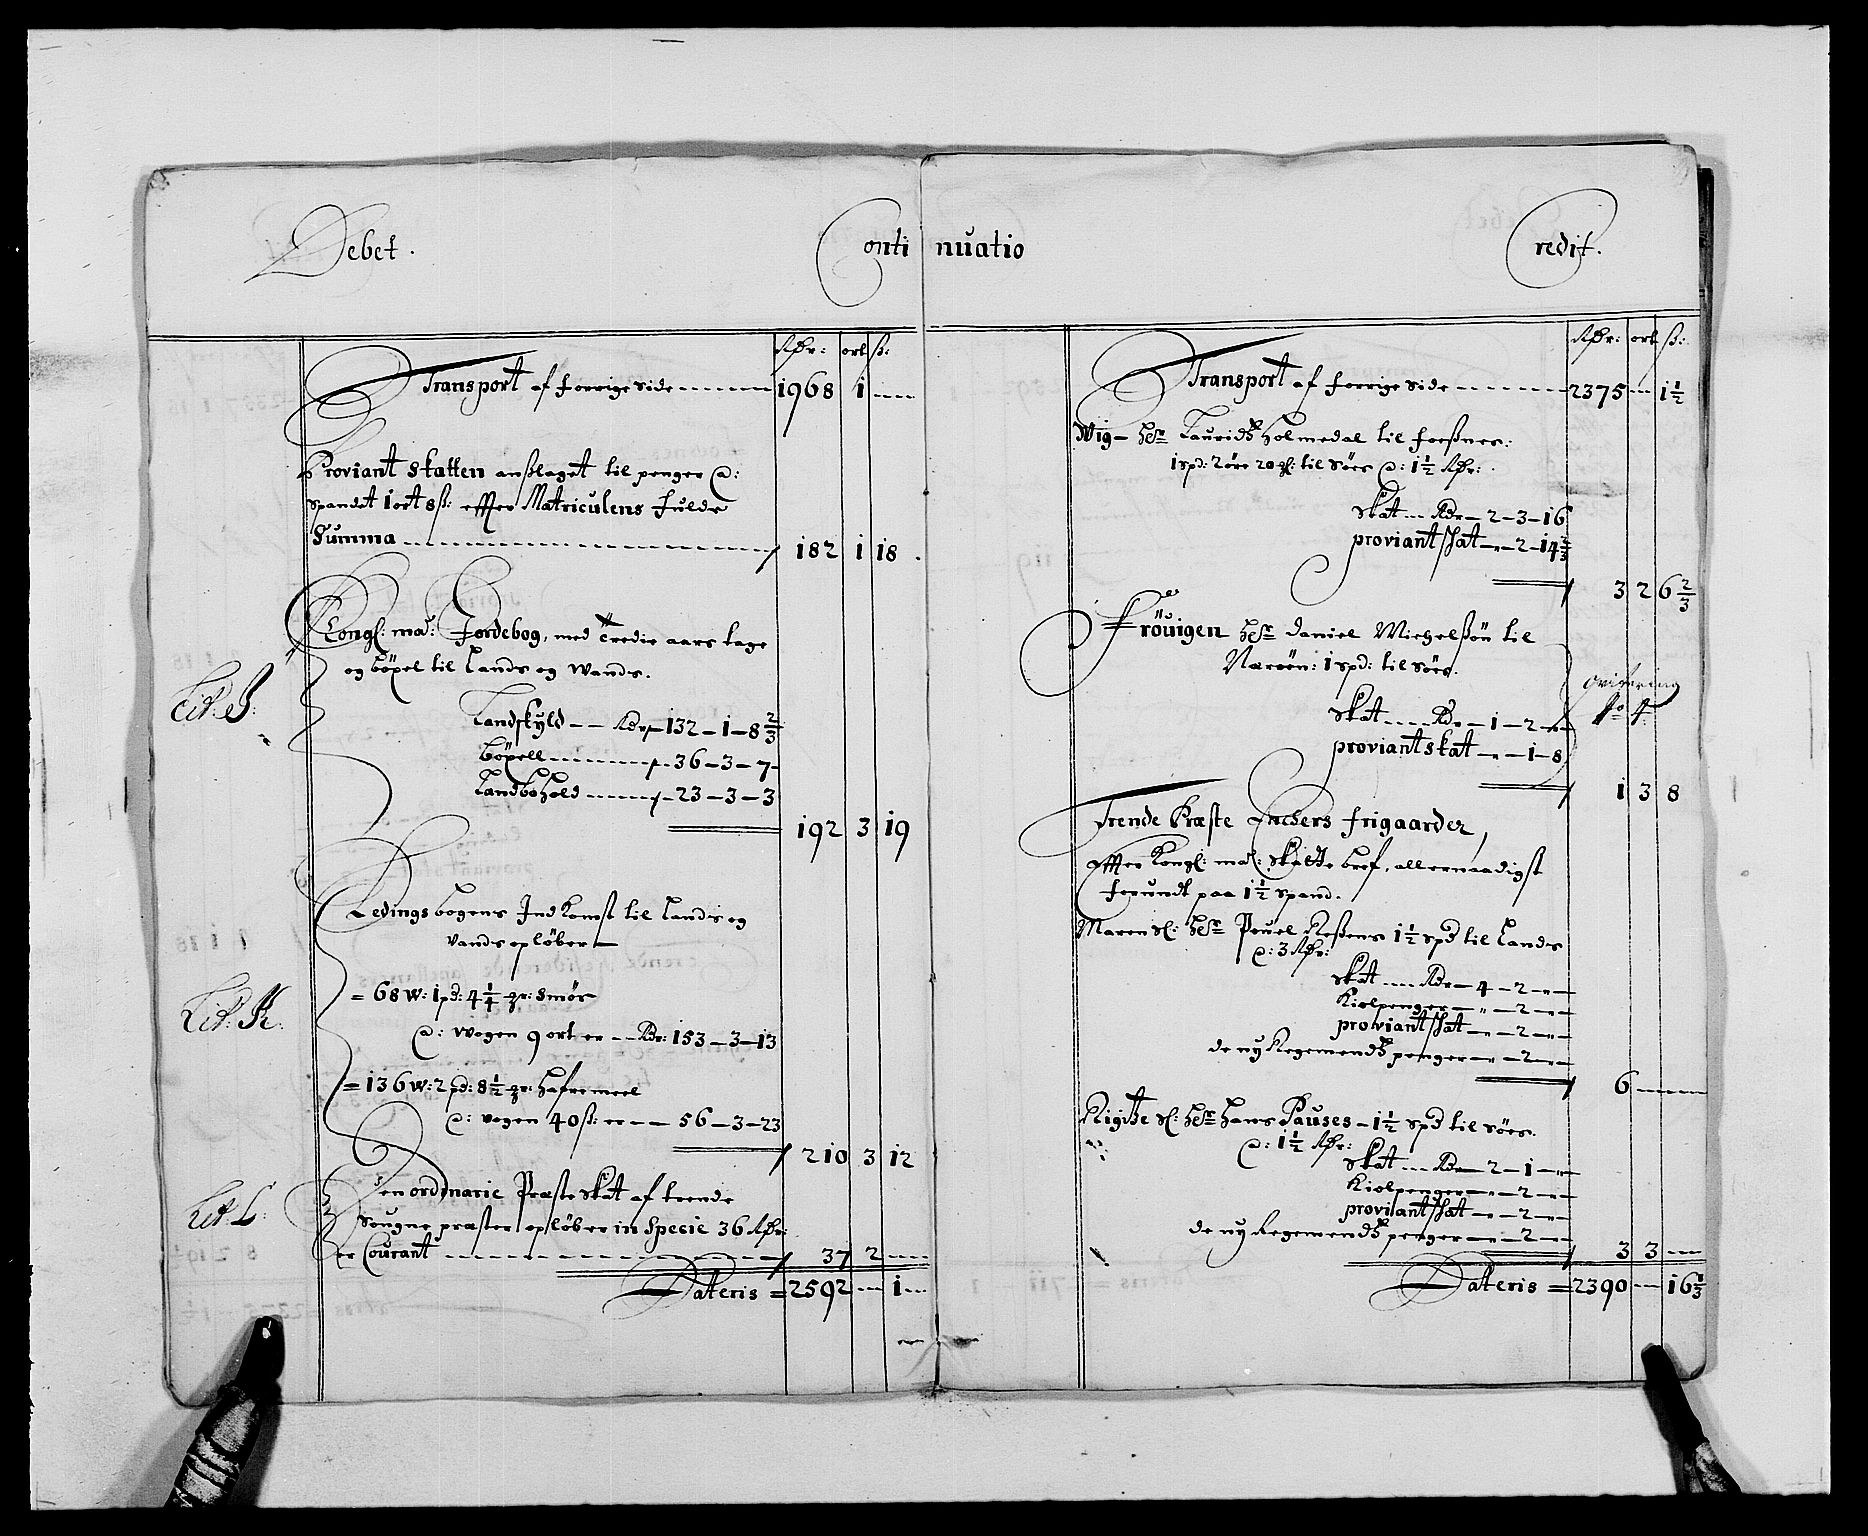 Debet.
Continuatio
Credit.
Rdr: ort ß:
Transport af forrige side 1968 1 —
Proviant skatten anßlaget til penger @:
spandet 1 ort 8 ß: effter Matriculens fulde
Summa 182 1 18.
Lit: J:
Kongl: may: Jordebog, med tredie aars tage
og böxel til Lands og Wands.
Landskyld — Rdr — 132 – 1 – 8 2/3
Böxell — 36 – 3 – 7 –
Landbohold — 23 – 3 – 3
192 3 19
Ledings bogens Ind Komst til Lands og
Vands opløber —
Lit: K:
= 68 W: 1 pd: 4 1/4 mr: smør
@: Wogen 9 ort er — Rdr: 153 – 3 – 13
= 136 W: 2 pd: 8 1/2 mr: hafremeel
@: vogen 40 ß: er — 56 – 3 – 23
210 3 12
Lit: L:
Den ordinarie Præste Skat af trende
Sougne præster opløber in Specie 36 Rdr:
er Courant 37 2 —
Lateris = 2592 — 1 —
Rdr: ort ß:
Transport af forrige side 2375 — 1 1/2
Wig – Hr Lauridß Holmedal til foeßnes:
1 spd: 2 øre 20 ml: til Søes @: 1 1/2 Rdr:
Skat — Rdr – 2 – 3 – 16
proviant skat — 2 – 14 2/3
3 2 6 2/3
Fröuigen Hr Daniel Michelßön til
Nærøen: 1 spd: til Søes.
qvitering
No 4.
Skat — Rdr – 1 – 2 –
proviant skat — 1 – 8
1 3 8
Trende Præste Enchers frigaarder,
effter Kongl: may: Skatte bref, allernaadigst
forundt paa 1 1/2 spand.
Maren Sl: Hr Pouel Reßens 1 1/2 spd til Lands
@: 3 Rdr:
Skat — Rdr – 4 – 2 –
Kiolpenger — 2 –
proviant skat — 2 –
de ny Regementß penger — 2 –
6 —
Rigitze Sl: Hr Hans Pauses – 1 1/2 spd til Søes.
@: 1 1/2 Rdr:
Skat — Rdr – 2 – 1 –
Kiolpenger — 2 –
proviant skat — 2 –
de ny Regementß penger — 2 –
3 3 —
Lateris = 2390 — 16 1/3